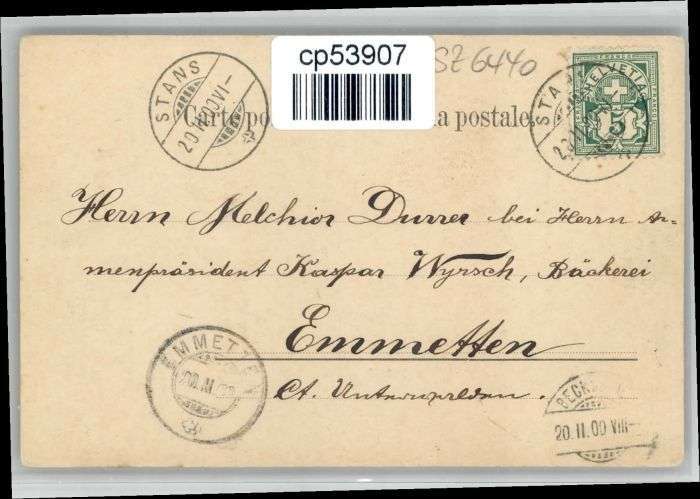 cp53907
SZ 6440
STANS
20 II 00 VI-
Carte po a postale.
HELVETIA
5
Herrn Melchior Durrer bei Herrn Ar-
menpräsident Kaspar Wyrsch, Bäckerei
Emmetten
Ct. Unterwalden.
EMMETTEN
20.II.00 VIII-